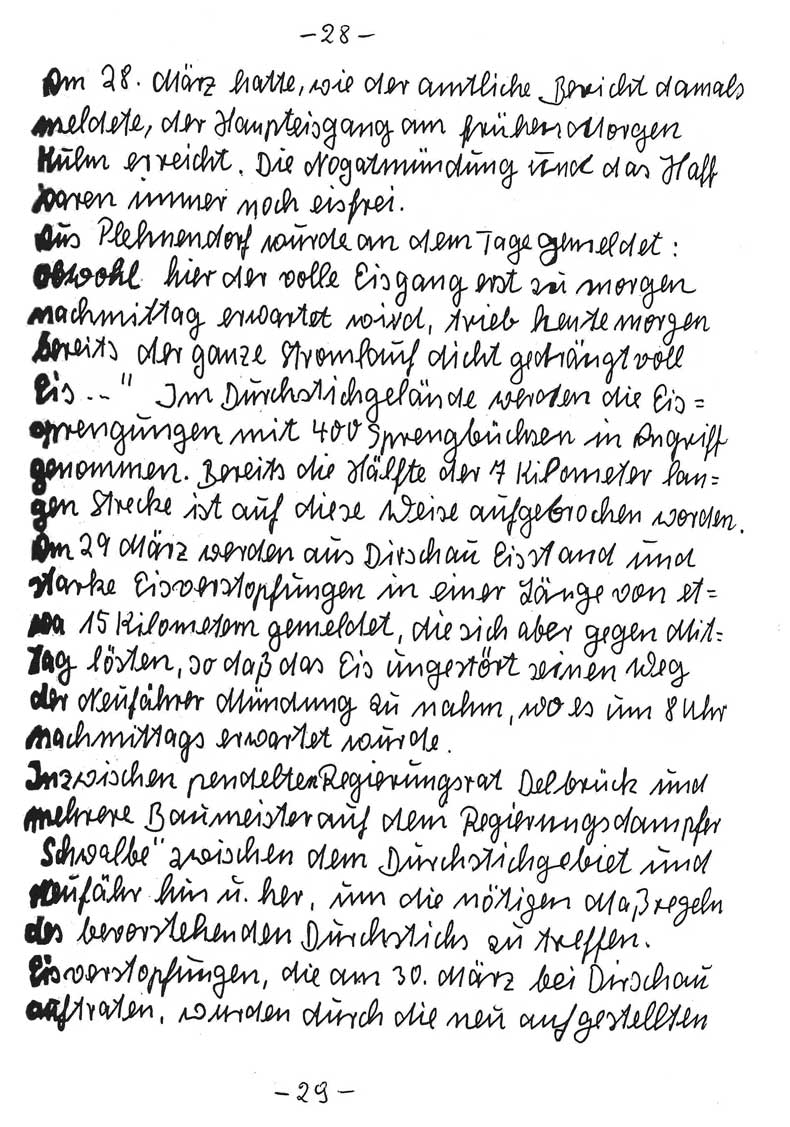 -28-
Am 28. März hatte, wie der amtliche Bericht damals
meldete, der Haupteisgang am frühen Morgen
Kulm erreicht. Die Nogatmündung und das Haff
waren immer noch eisfrei.
Aus Plehnendorf wurde an dem Tage gemeldet:
obwohl hier der volle Eisgang erst zu morgen
nachmittag erwartet wird, trieb heute morgen
bereits der ganze Stromlauf dicht gedrängt voll
Eis.." Im Durchstichgelände werden die Eis=
sprengungen mit 400 Sprengbüchsen in Angriff
genommen. Bereits die Hälfte der 7 Kilometer lan=
gen Strecke ist auf diese Weise aufgebrochen worden.
Am 29 März werden aus Dirschau Eisstand und
starke Eisverstopfungen in einer Länge von et=
wa 15 Kilometern gemeldet, die sich aber gegen Mit=
tag lösten, so daß das Eis ungestört seinen Weg
der Neufährer Mündung zu nahm, wo es um 8 Uhr
nachmittags erwartet wurde.
Inzwischen pendelten Regierungsrat Delbrück und
mehrere Baumeister auf dem Regierungsdampfer
Schwalbe" zwischen dem Durchstichgebiet und
Neufähr hin u. her, um die nötigen Maßregeln
des bevorstehenden Durchstichs zu treffen.
Eisverstopfungen, die am 30. März bei Dirschau
auftraten, wurden durch die neu aufgestellten
-29-